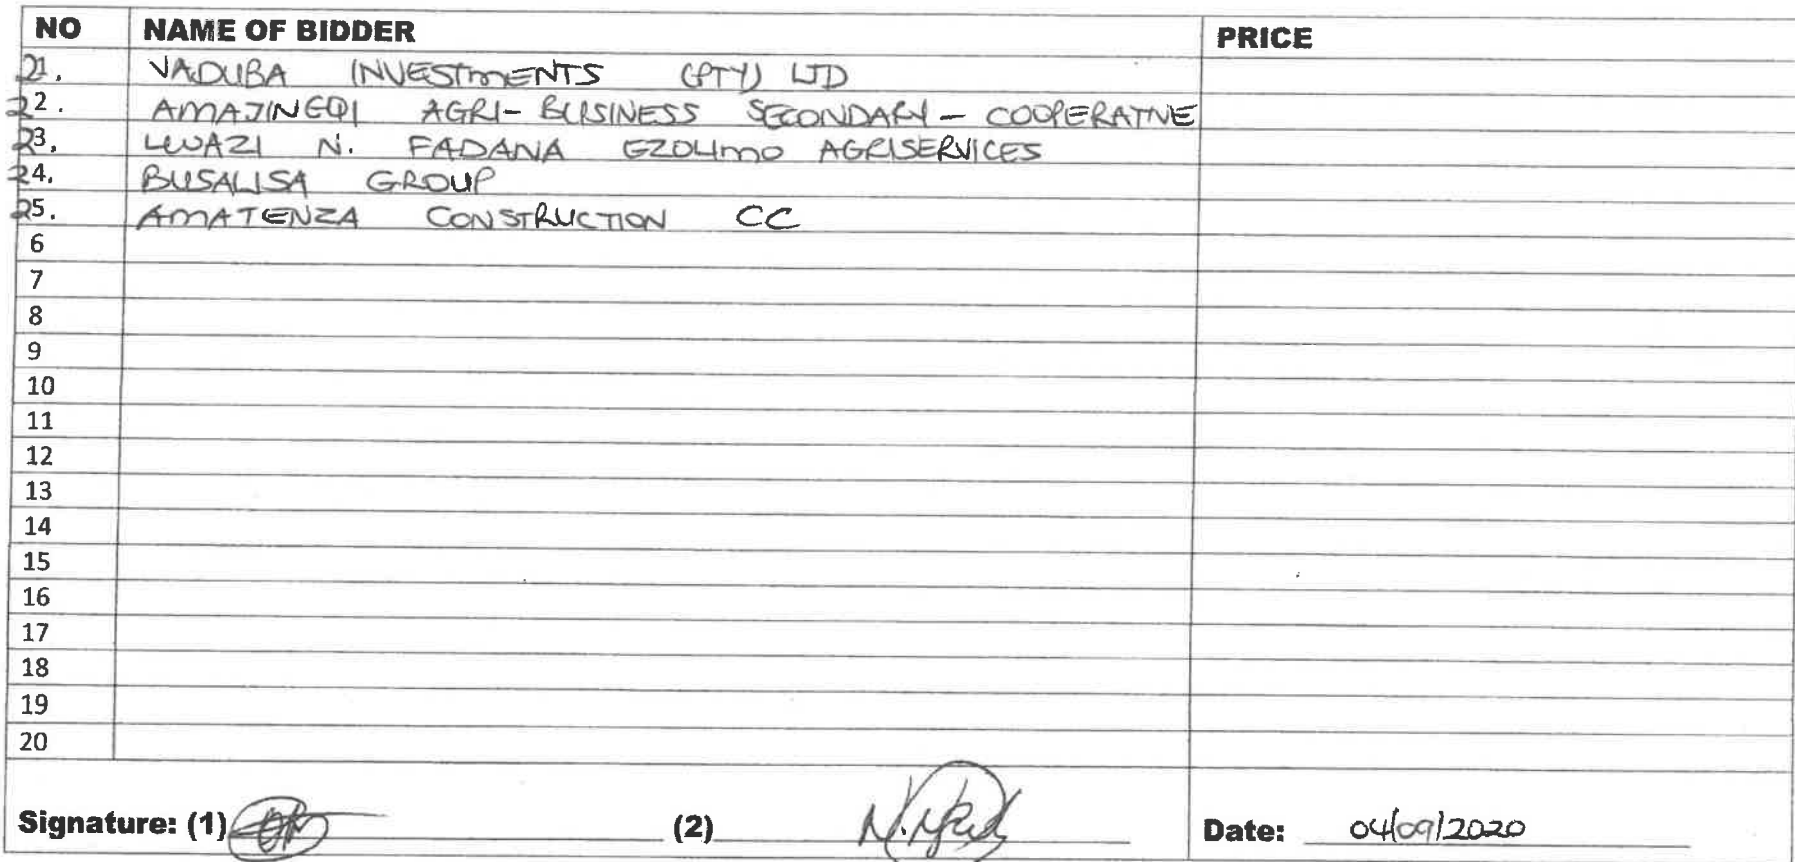 NO NAME OF BIDDER PRICE
21. VADUBA INVESTMENTS (PTY) LTD
22. AMAJINGQI AGRI-BUSINESS SECONDARY - COOPERATIVE
23. LWAZI N. FADANA EZOLIMO AGRISERVICES
24. BUSALISA GROUP
25. AMATENZA CONSTRUCTION CC
6
7
8
9
10
11
12
13
14
15
16
17
18
19
20
Signature: (1) (2) Date: 04/09/2020